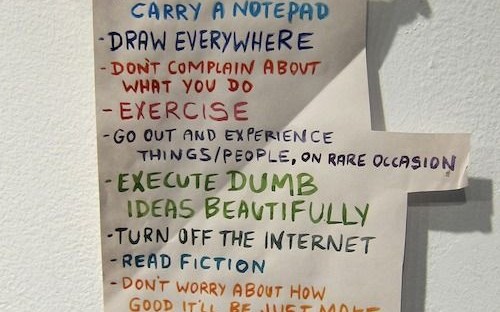 CARRY A NOTEPAD
-DRAW EVERYWHERE
-DON'T COMPLAIN ABOUT
WHAT YOU DO
-EXERCISE
-GO OUT AND EXPERIENCE
THINGS/PEOPLE, ON RARE OCCASION
-EXECUTE DUMB
IDEAS BEAUTIFULLY
-TURN OFF THE INTERNET
-READ FICTION
-DON'T WORRY ABOUT HOW
GOOD IT'LL BE JUST MAKE